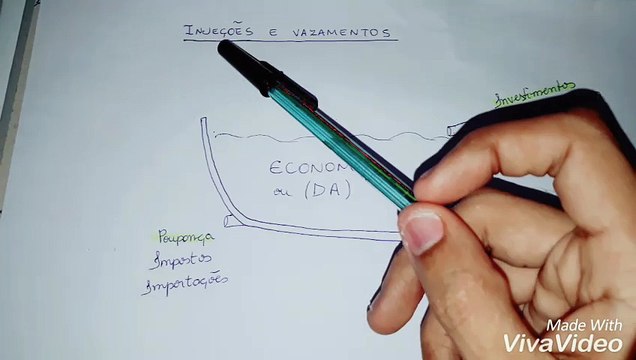 INJEÇÕES E VAZAMENTOS
Investimentos
ECONOM
ou (DA)
Poupança
Impostos
Importações
Made With
VivaVideo